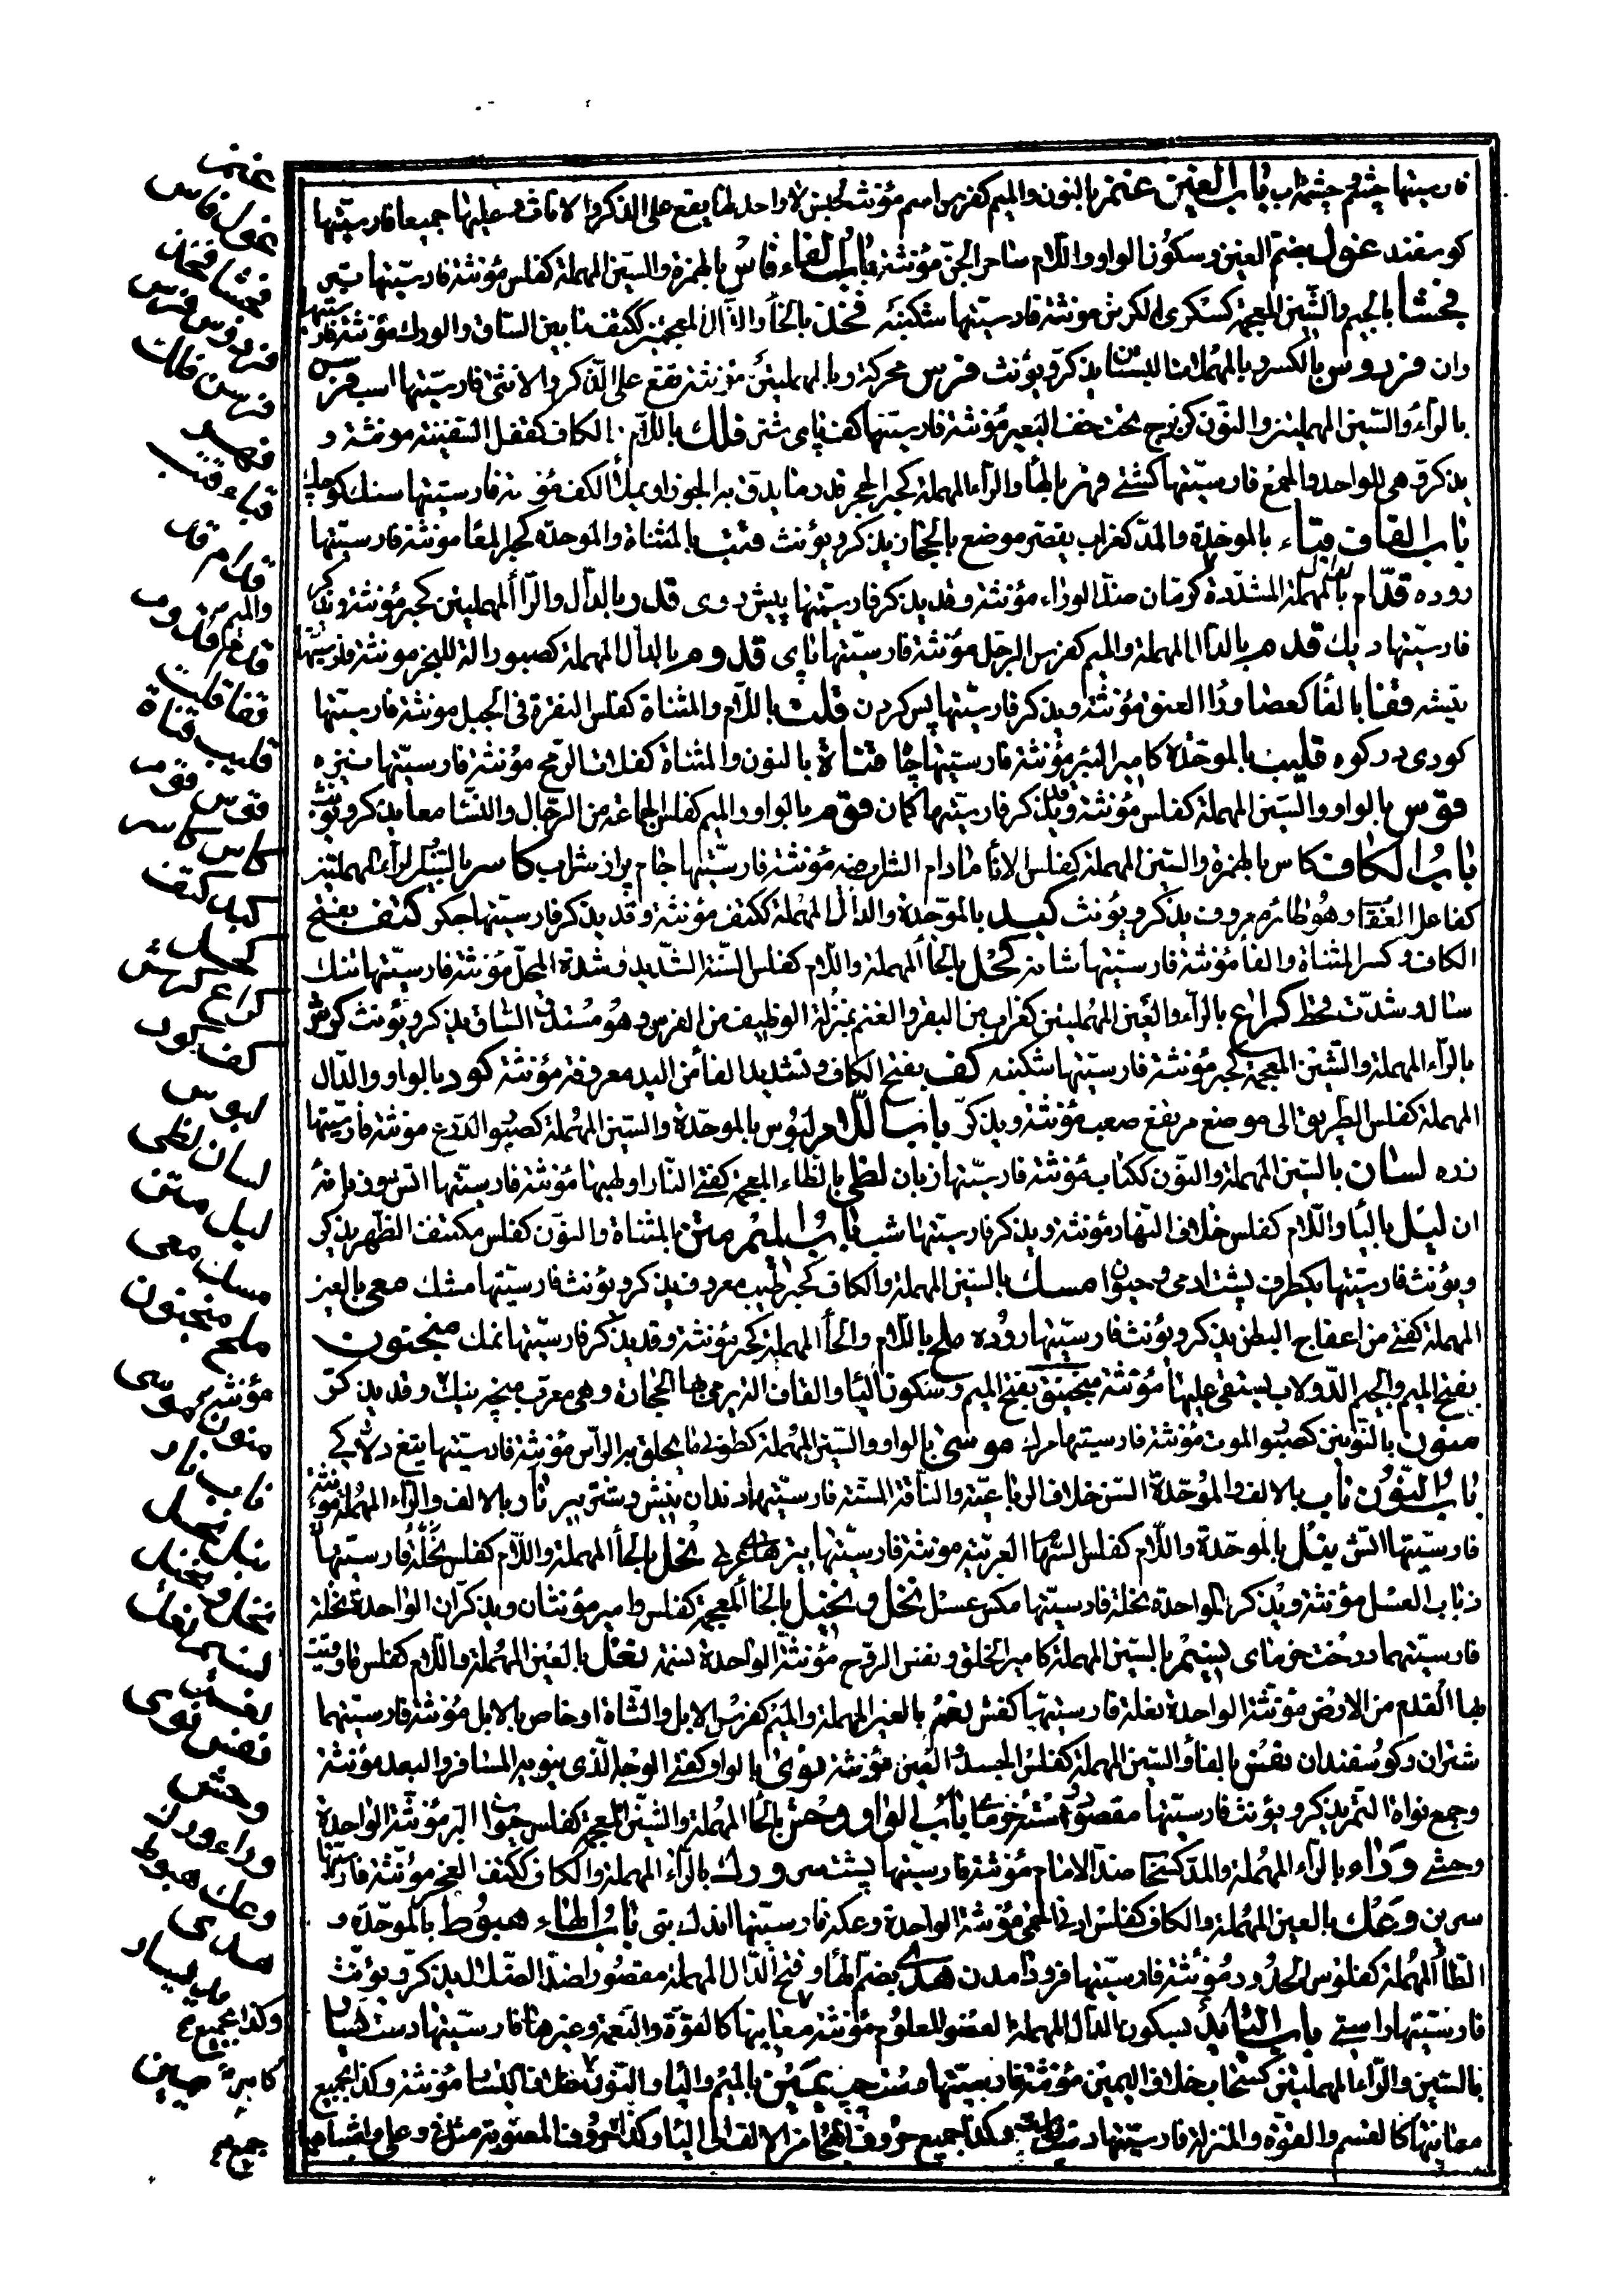 فارسيتها چشم و چشمه آب باب العين غنم بالنون والميم كفرس اسم مؤنث للجنس لا واحد لها يقع على الذكر والاناث وعليهما جميعا فارسيتها
كوسفند غول بضم الغين وسكون الواو واللام ساحر الجن مؤنثة باب الفاء فاس بالهمزة والسين المهملة كفلس مؤنثة فارسيتها تبر
فحشا بالجيم والشين المعجمة كسكرى الكرش مؤنثة فارسيتها شكنبه فخذ بالخاء والذال المعجمتين ككتف ما بين الساق والورك مؤنثة فارسيتها
ران فردوس بالكسر وبالمهملات البستان يذكر ويؤنث فرس محركة وبالمهملتين مؤنثة تقع على الذكر والانثى فارسيتها اسب فرسن
بالراء والسين المهملتين والنون كزبرج تحت خف البعير مؤنثة فارسيتها كف پاى شتر فلك باللام والكاف كقفل السفينة مؤنثة و
يذكر وهى للواحد والجمع فارسيتها كشتى فهر بالهاء والراء المهملة كحبر الحجر قدر ما يدق به الجوز او يملأ الكف مؤنثة فارسيتها سنك كوچك
باب القاف قباء بالموحدة والمد كغراب يقصر موضع بالحجاز يذكر ويؤنث قتب بالمثناة والموحدة كحبر المعا مؤنثة فارسيتها
روده قدام بالمهملة المشددة كرمان ضد الوراء مؤنثة وقد يذكر فارسيتها پيش روى قدر بالدال والراء المهملتين كحبر مؤنثة ويذكر
فارسيتها ديك قدم بالدال المهملة والميم كفرس الرجل مؤنثة فارسيتها پاى قدوم بالدال المهملة كصبور الة للنجر مؤنثة فارسيتها
تيشه قفا بالفاء كعصا وراء العنق مؤنثة ويذكر فارسيتها پس كردن قلت باللام والمثناة كفلس النقرة فى الجبل مؤنثة فارسيتها
كودى در كوه قليب بالموحدة كامير البئر مؤنثة فارسيتها چاه قناة بالنون والمثناة كفلات الرمح مؤنثة فارسيتها نيزه
قوس بالواو والسين المهملة كفلس مؤنثة وقد يذكر فارسيتها كمان قوم بالواو والميم كفلس الجماعة من الرجال والنساء معا يذكر ويؤنث
باب الكاف كاس بالهمزة والسين المهملة كفلس الاناء مادام الشراب فيه مؤنثة فارسيتها جام پر از شراب كاسر بالسين والراء المهملتين
كفاعل العقاب وهو طائر معروف يذكر ويؤنث كبد بالموحدة والدال المهملة ككتف مؤنثة وقد يذكر فارسيتها جكر كتف بفتح
الكاف وكسر المثناة والفاء مؤنثة فارسيتها شانه كحل بالحاء المهملة واللام كفلس السنة الشديدة وشدة المحل مؤنثة فارسيتها تنك
سالى وشدت قحط كراع بالراء والعين المهملتين كغراب من البقر والغنم بمنزلة الوظيف من الفرس وهو مستدق الساق يذكر ويؤنث كرش
بالراء المهملة والشين المعجمة كحبر مؤنثة فارسيتها شكنبه كف بفتح الكاف وتشديد الفاء من اليد معروفة مؤنثة كود بالواو والدال
المهملة كفلس الطريق الى موضع مرتفع صعب مؤنثة ويذكر باب اللام لبوس بالموحدة والسين المهملة كصبور الدرع مؤنثة فارسيتها
زره لسان بالسين المهملة والنون ككتاب مؤنثة فارسيتها زبان لظى بالظاء المعجمة كفتى النار او لهبها مؤنثة فارسيتها اتش سوز زبانه
ان ليل بالياء واللام كفلس خلاف النهار مؤنثة ويذكر فارسيتها شب باب الميم متن بالمثناة والنون كفلس مكتنف الظهر يذكر
ويؤنث فارسيتها يكطرف پشت ادمى وحيوان مسك بالسين المهملة والكاف كحبر طيب معروف يذكر ويؤنث فارسيتها مشك معى بالعين
المهملة كفتى من اعفاج البطن يذكر ويؤنث فارسيتها روده ملح باللام والحاء المهملة كحبر مؤنثة وقد يذكر فارسيتها نمك منجنون
بفتح الميم والجيم الدولاب يستقى عليها مؤنثة منجنيق بفتح الميم وسكون الياء والقاف التى يرمى بها الحجارة وهى معرب من چه نيك وقد يذكر
منون بالنونين كصبور الموت مؤنثة فارسيتها مرك موسى بالواو والسين المهملة كطوبى ما يحلق به الراس مؤنثة فارسيتها تيغ دلاكى
باب النون ناب بالالف والموحدة السن خلاف الرباعية والناقة المسنة فارسيتها دندان نيش وشتر پير نار بالالف والراء المهملة مؤنثة
فارسيتها اتش نبل بالموحدة واللام كفلس السهام العربية مؤنثة فارسيتها تيرهاى عربى نحل بالحاء المهملة واللام كفلس فارسيتها
ذباب العسل مؤنثة ويذكر الواحدة نحلة فارسيتها مكس عسل نخل ونخيل بالخاء المعجمة كفلس وامير مؤنثان ويذكران الواحدة نخلة
فارسيتهما درخت خرماى نسيم بالسين المهملة كامير الخلق ونفس الروح مؤنثة الواحدة نسمة نعل بالعين المهملة واللام كفلس ما وقيت
بها القدم من الارض مؤنثة الواحدة نعلة فارسيتها كفش نعم بالعين المهملة والميم كفرس الابل والشاة او خاص بالابل مؤنثة فارسيتهما
شتران وكوسفندان نفس بالفاء والسين المهملة كفلس الجسد العين مؤنثة نوى بالواو كفتى الوجه الذى ينويه المسافر والبعد مؤنثة
وجمع نواة التمر يذكر ويؤنث فارسيتها مقصود هسته خرما باب الواو وحش بالحاء المهملة والشين المعجمة كفلس حيوان البر مؤنثة الواحدة
وحشى وراء بالراء المهملة والمد كسحاب ضد الامام مؤنثة فارسيتها پشت سر ورك بالراء المهملة والكاف ككتف العجز مؤنثة فارسيتها
سرين وعك بالعين المهملة والكاف كفلس ادنى الحمى مؤنثة الواحدة وعكة فارسيتها اندك تبى باب الهاء هبوط بالموحدة و
الطاء المهملة كفلوس الحدور مؤنثة فارسيتها فرود امدن هدى بضم الهاء وفتح الدال المهملة مقصورا ضد الضلال يذكر ويؤنث
فارسيتها راستى باب الياء يد بسكون الدال المهملة العضو المعلوم مؤنثة معانيها كالقوة والنعمة وغيرها فارسيتها دست يسار
بالسين والراء المهملتين كسحاب خلاف اليمين مؤنثة فارسيتها دست چپ يمين بالميم والياء والنون خلاف اليسار مؤنثة وكذا جميع
معانيها كالقسم والقوة والمنزلة فارسيتها دست راست وكذا جميع حروف الهجا من الالف الى الياء وكذا الحروف المعنوية مثل فى وعلى واشباهها
غنم
غول فاس
فحشا فخذ
فردوس فرس
فرسن فلك
فهر
قباء قتب
قدام قدر
قدم قدوم
قفا قلت
قليب قناة
قوس قوم
كاس كاسر
كبد كتف
كحل
كراع كرش
كف كود
لبوس
لسان لظى
ليل متن
مسك معى
منجنون
ملح
منون موسى
ناب نار
نبل نحل
نخل ونخيل
نسيم نعل
نفس نوى
وحش
وراء ورك
وعك هبوط
هدى
يد يسار
وكذا جميع
يمين